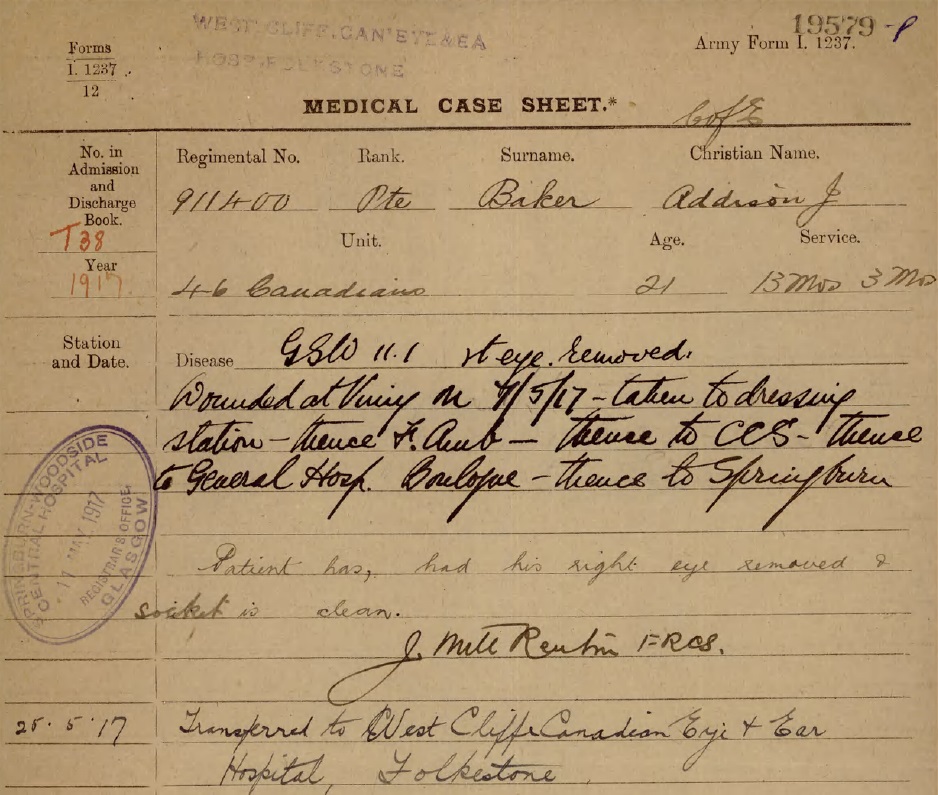 WEST CLIFF. CAN EYE & EA
HOSP. FOLKESTONE
19579-P
Forms
I. 1237
12
Army Form I. 1237.
MEDICAL CASE SHEET.*
C of E
No. in
Admission
and
Discharge
Book.
T38
Year
1917
Regimental No. Rank. Surname. Christian Name.
911400 Pte Baker Addison J
Unit. Age. Service.
46 Canadians 21 13 Mos 3 Mos
Station
and Date.
Disease GSW 11.1 rt eye. removed.
Wounded at Vimy on /5/17 - taken to dressing
station - thence F. Amb - thence to CCS - thence
to General Hosp. Boulogne - thence to Springburn
SPRINGBURN-WOODSIDE
CENTRAL HOSPITAL
11 MAY 1917
REGISTRAR'S OFFICE.
GLASGOW
Patient has, had his right eye removed &
socket is clean.
J. FRCS.
25.5.17 Transferred to West Cliffe Canadian Eye + Ear
Hospital, Folkestone.